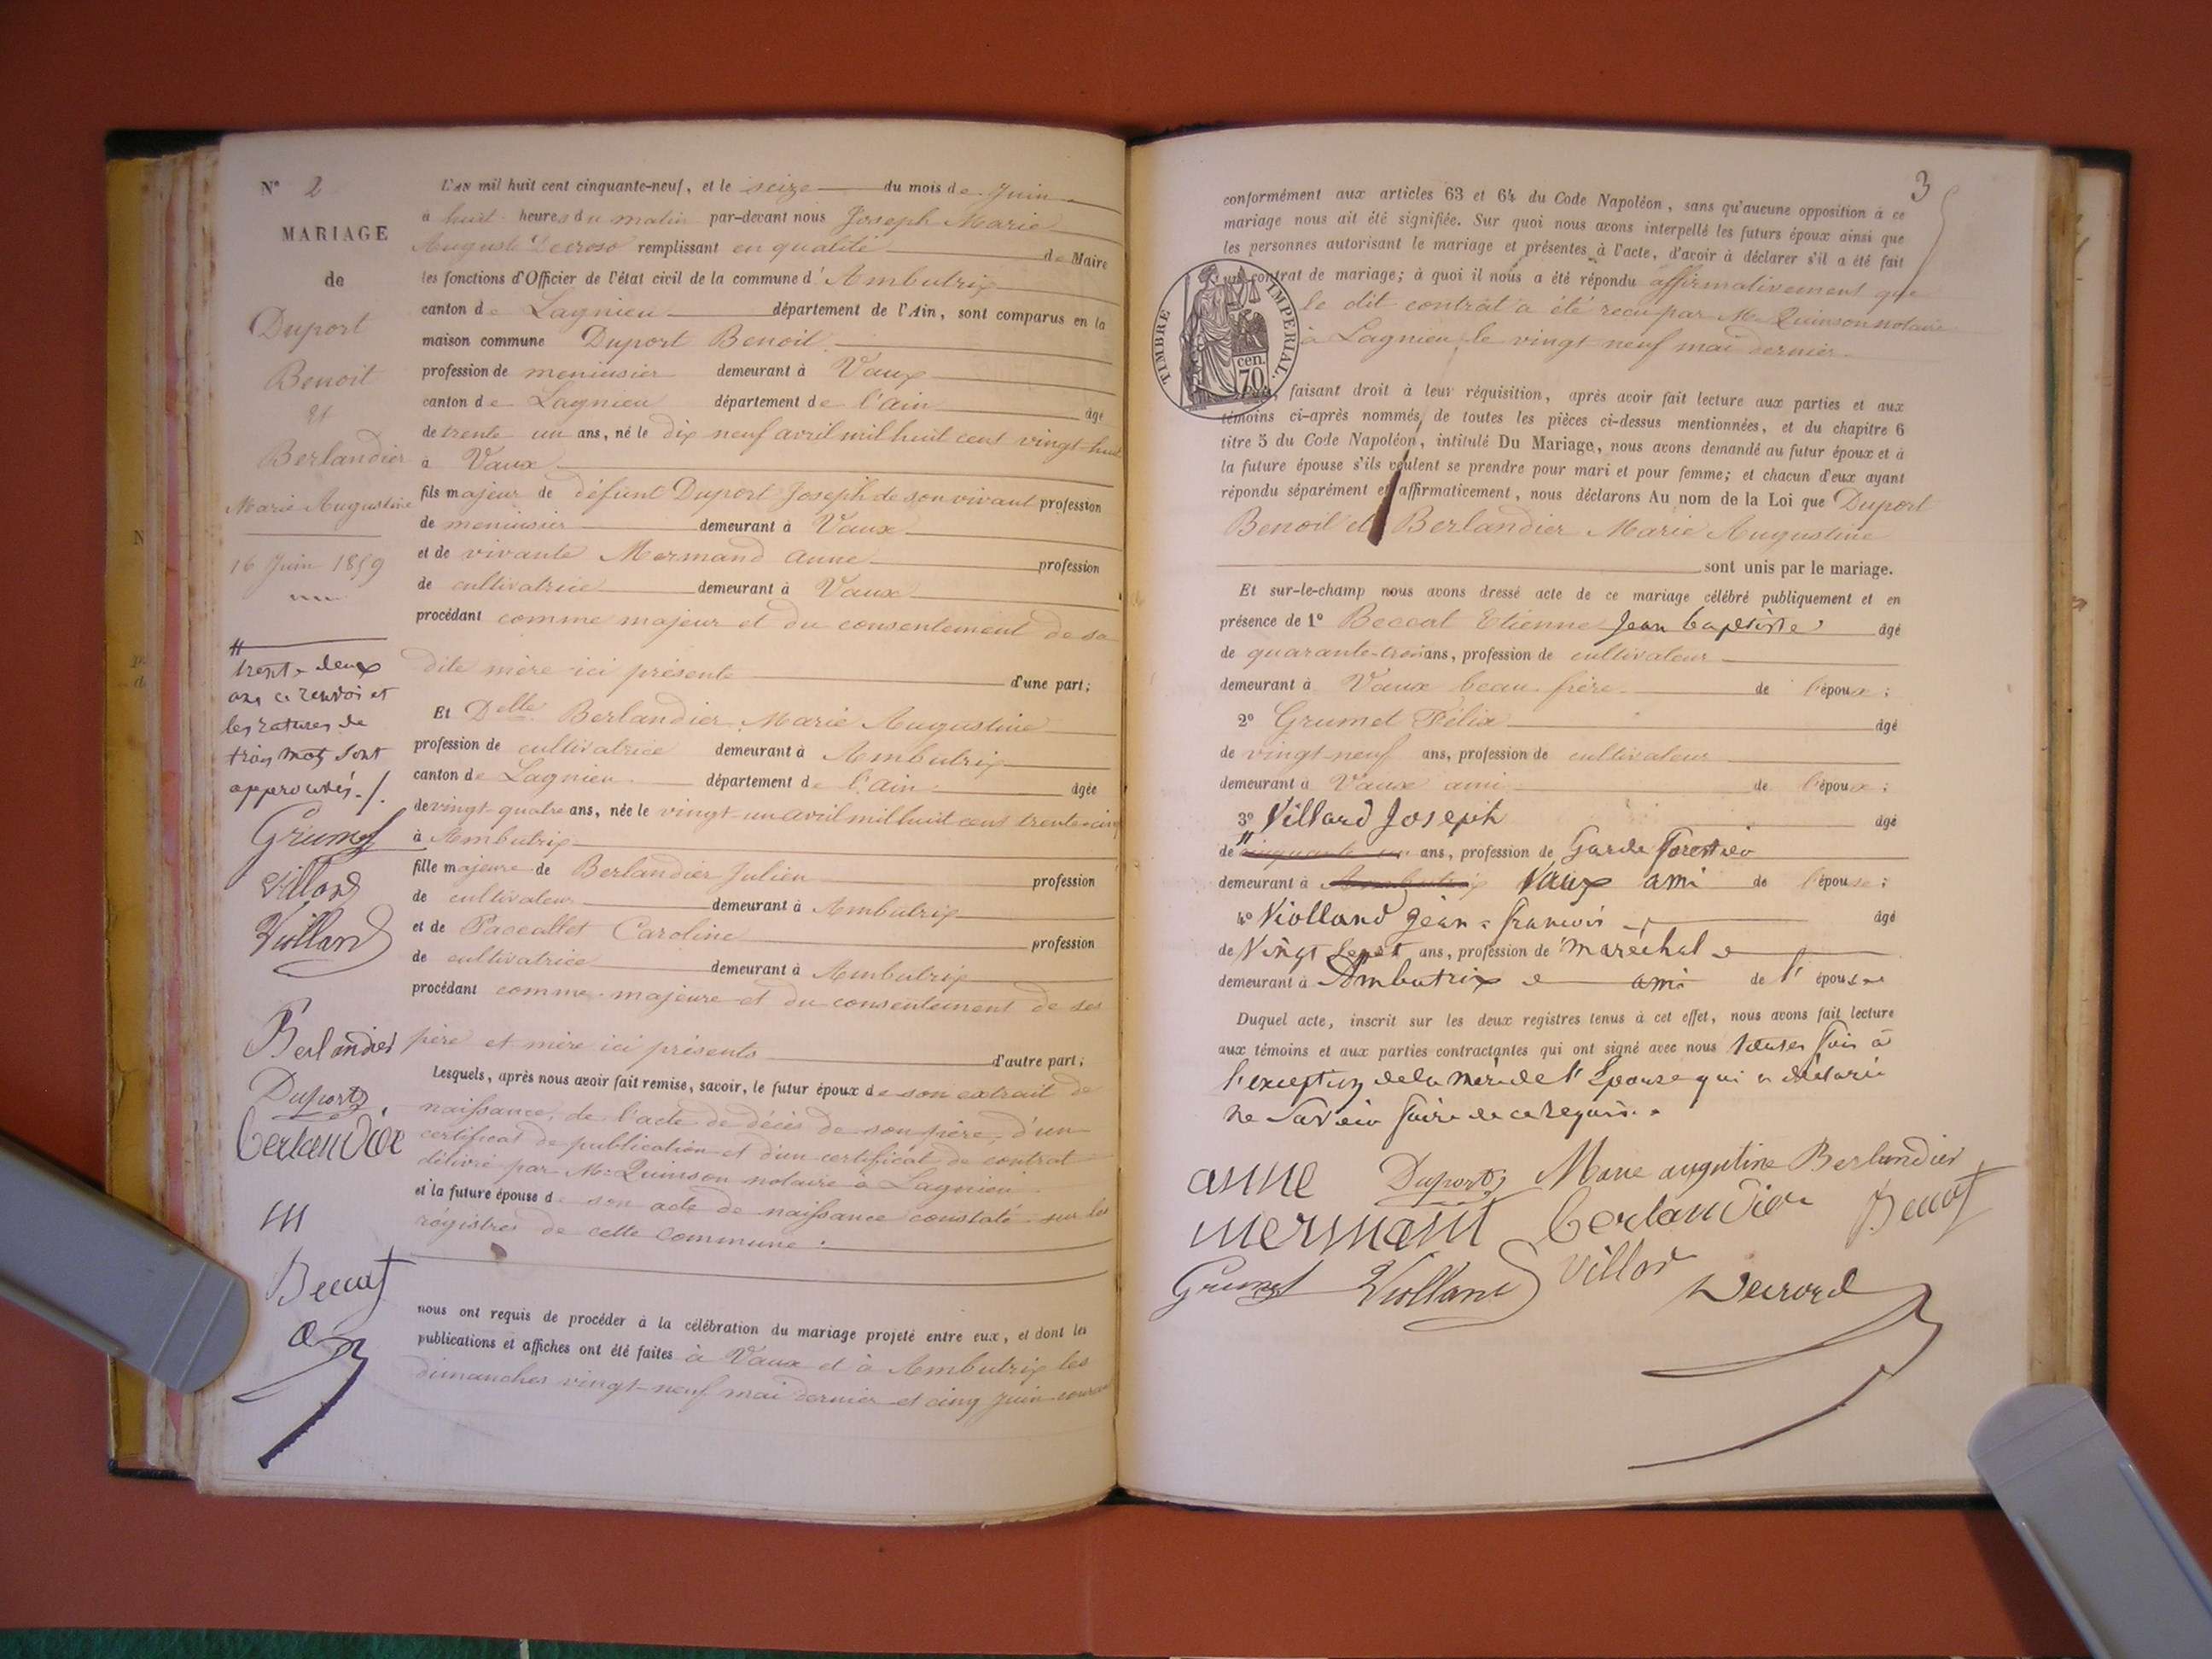 N° 2
MARIAGE
de
Duport
Benoit
et
Berlandier
Marie Augustine
16 Juin 1859
trente deux
ans ce renvoi et
les ratures de
trois mots sont
approuvés ./.
Grumet
Villard
Violland
Berlandier
Duport
berlandier
Beccat
L'AN mil huit cent cinquante-neuf, et le seize du mois de Juin
à huit heures du matin par-devant nous Joseph Marie
Auguste Decroso remplissant en qualité de Maire
les fonctions d'Officier de l'état civil de la commune d'Ambutrix
canton de Lagnieu département de l'Ain, sont comparus en la
maison commune Duport Benoit
profession de menuisier demeurant à Vaux
canton de Lagnieu département de l'ain âgé
de trente un ans, né le dix neuf avril mil huit cent vingt-huit
à Vaux
fils majeur de défunt Duport Joseph de son vivant profession
de menuisier demeurant à Vaux
et de vivante Mermand anne profession
de cultivatrice demeurant à Vaux
procédant comme majeur et du consentement de sa
dite mère ici présente d'une part;
Et Delle Berlandier Marie Augustine
profession de cultivatrice demeurant à Ambutrix
canton de Lagnieu département de l'ain âgée
de vingt-quatre ans, née le vingt-un avril mil huit cent trente-cinq
à Ambutrix
fille majeure de Berlandier Julien profession
de cultivateur demeurant à Ambutrix
et de Paccallet Caroline profession
de cultivatrice demeurant à Ambutrix
procédant comme majeure et du consentement de ses
père et mère ici présents d'autre part;
Lesquels, après nous avoir fait remise, savoir, le futur époux de son extrait de
naissance, de l'acte de décès de son père, d'un
certificat de publication et d'un certificat de contrat
délivré par Me Quinson notaire à Lagnieu
et la future épouse de son acte de naissance constaté sur les
régistres de cette commune.
nous ont requis de procéder à la célébration du mariage projeté entre eux, et dont les
publications et affiches ont été faites à Vaux et à Ambutrix les
dimanches vingt-neuf mai dernier et cinq juin courant
3
conformément aux articles 63 et 64 du Code Napoléon, sans qu'aucune opposition à ce
mariage nous ait été signifiée. Sur quoi nous avons interpellé les futurs époux ainsi que
les personnes autorisant le mariage et présentes à l'acte, d'avoir à déclarer s'il a été fait
contrat de mariage; à quoi il nous a été répondu affirmativement que
le dit contrat a été reçu par Me Quinson notaire
à Lagnieu le vingt neuf mai dernier
TIMBRE IMPERIAL.
70 cen.
faisant droit à leur réquisition, après avoir fait lecture aux parties et aux
témoins ci-après nommés, de toutes les pièces ci-dessus mentionnées, et du chapitre 6
titre 5 du Code Napoléon, intitulé Du Mariage, nous avons demandé au futur époux et à
la future épouse s'ils veulent se prendre pour mari et pour femme; et chacun d'eux ayant
répondu séparément et affirmativement, nous déclarons Au nom de la Loi que Duport
Benoit et Berlandier Marie Augustine
sont unis par le mariage.
Et sur-le-champ nous avons dressé acte de ce mariage célébré publiquement et en
présence de 1° Beccat Etienne Jean baptiste âgé
de quarante-trois ans, profession de cultivateur
demeurant à Vaux beau frère de l'époux;
2° Grumet Félix âgé
de vingt-neuf ans, profession de cultivateur
demeurant à Vaux ami de l'époux;
3° Villard Joseph âgé
de cinquante un ans, profession de Garde forestier
demeurant à Ambutrix Vaux ami de l'épouse;
4° Violland jean-francois âgé
de Vingt Sept ans, profession de maréchal
demeurant à Ambutrix ami de l'épouse
Duquel acte, inscrit sur les deux registres tenus à cet effet, nous avons fait lecture
aux témoins et aux parties contractantes qui ont signé avec nous toutes fois à
l'exception de la mère de l'Epouse qui a déclaré
ne Savoir faire de ce requis.
anne Duport Marie augustine Berlandier
mermant berlandier Beccat
Grumet Violland Villard